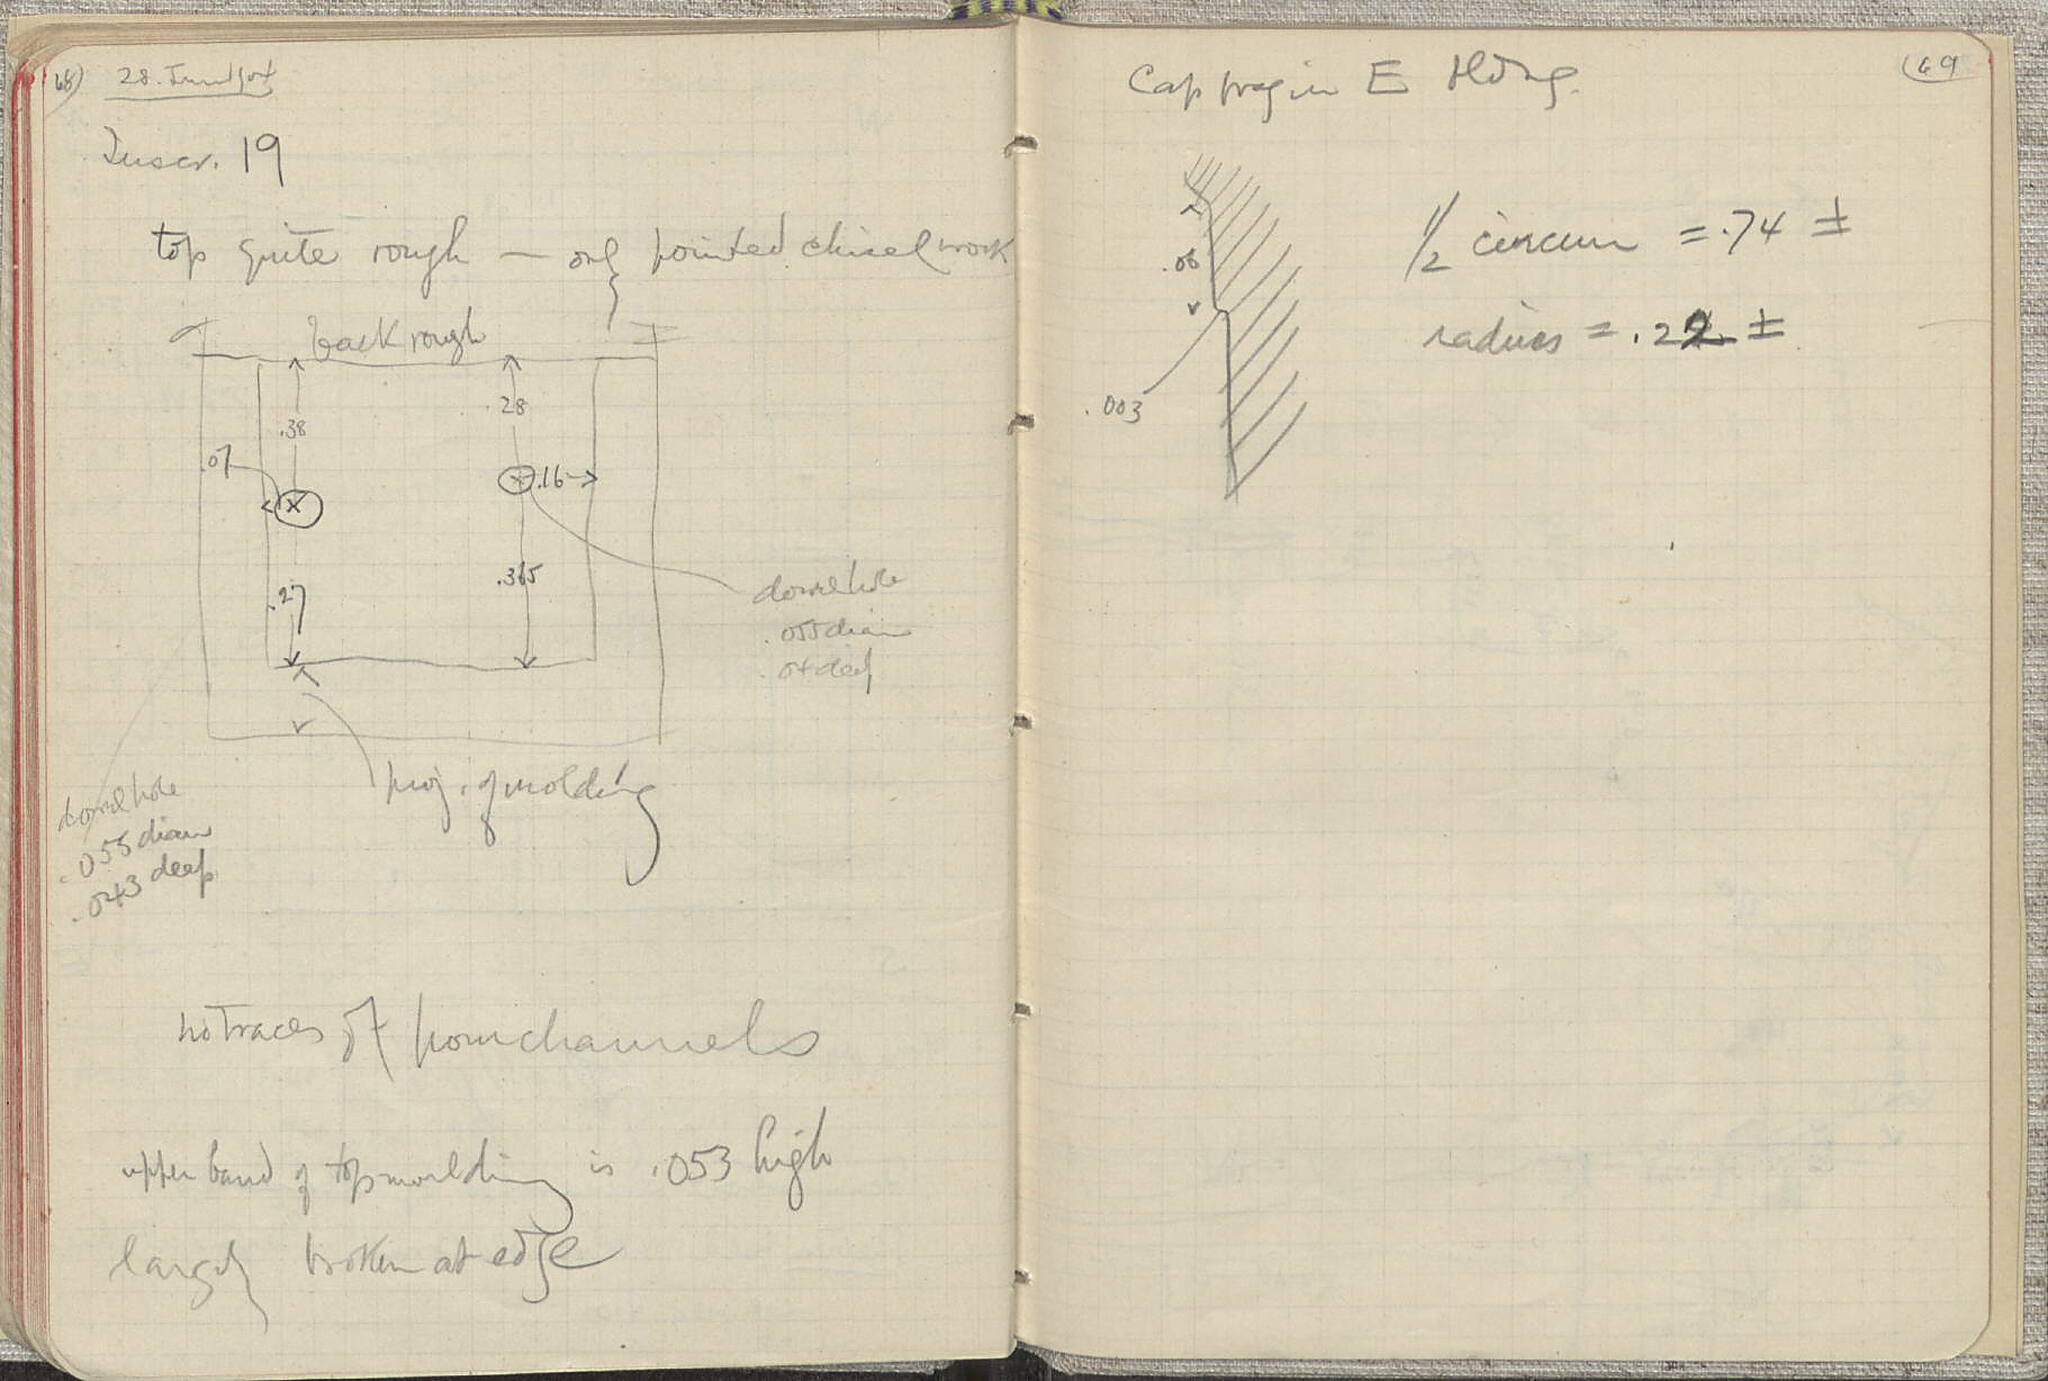 68)
28.
Inscr. 19
top quite rough — only pointed chisel work
back rough
.38
.28
.07
.16
.27
.365
dowel hole
.055 diam
.04 deep
proj. of molding
dowel hole
.055 diam
.043 deep
no traces of pour channels
upper band of top moulding is .053 high
largely broken at edge
(69
Cap frag in E Bldg.
.06
.003
1/2 circum = .74 ±
radius = .22 ±